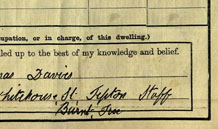 cupation, or in charge, of this dwelling.)
lled up to the best of my knowledge and belief.
mas Davies
hitehouse St. Tipton Staff
Burnt Tree